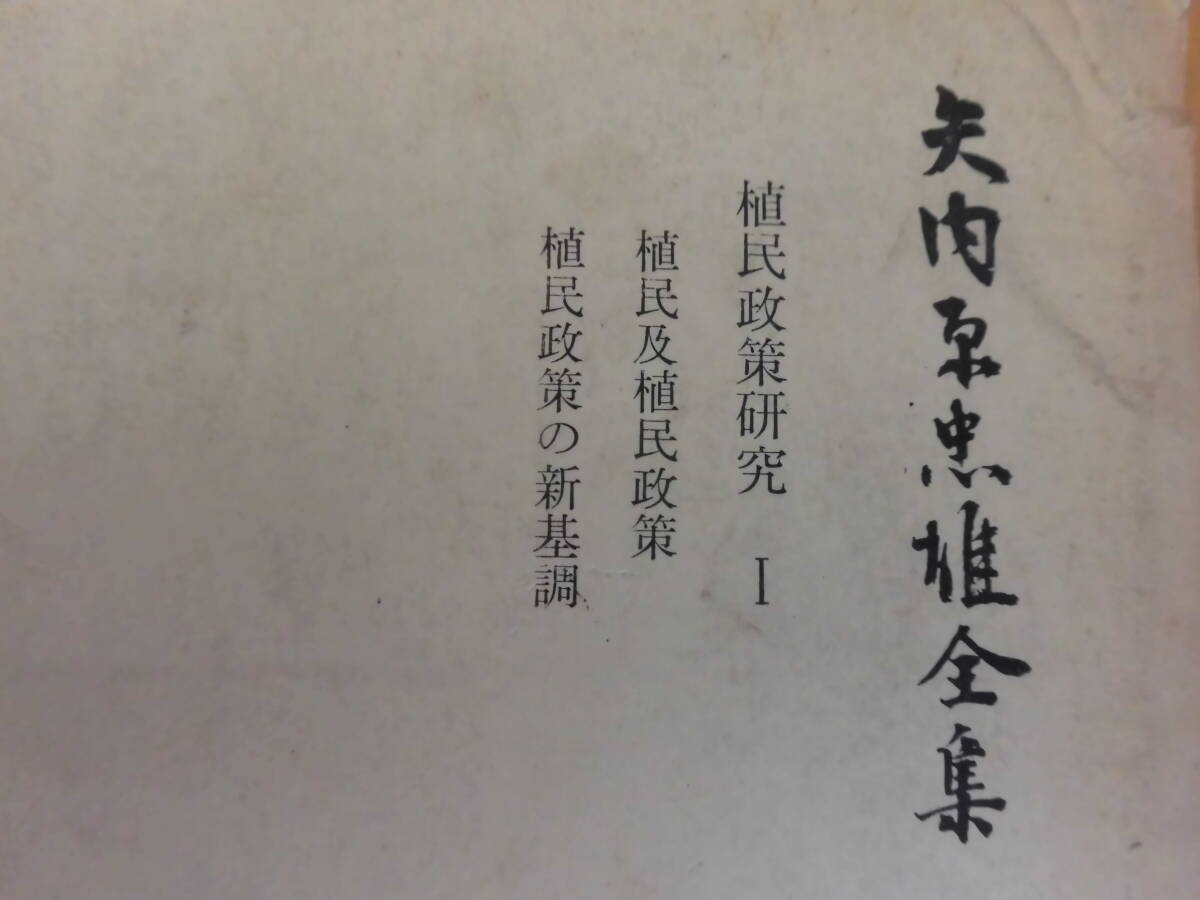 矢内原忠雄全集
植民政策研究 I
植民及植民政策
植民政策の新基調